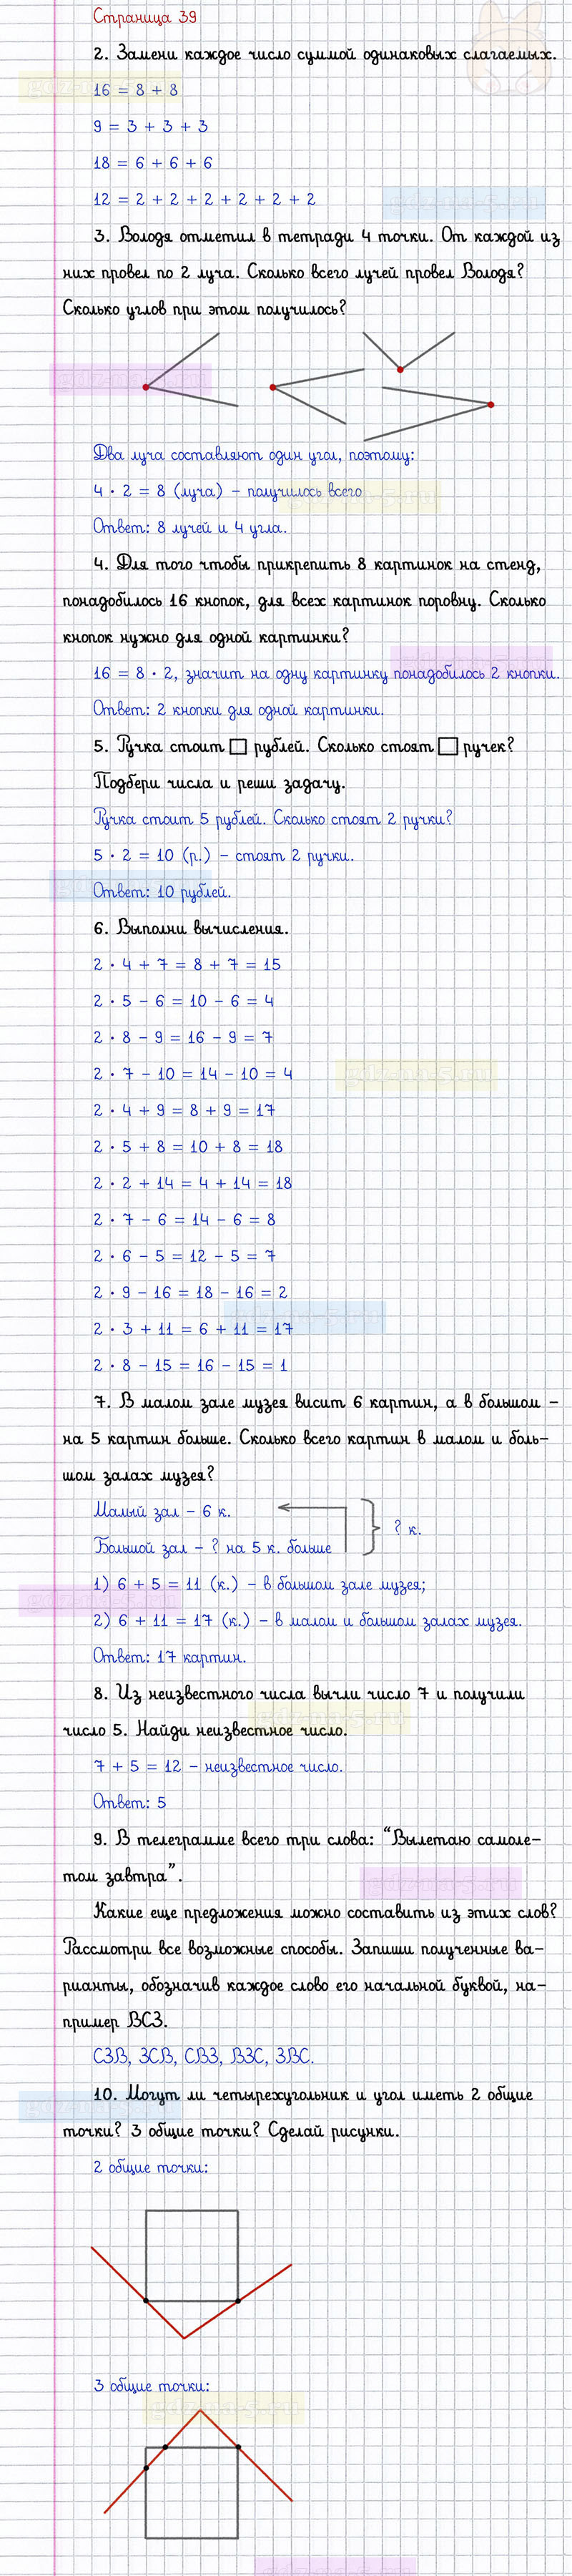 Страница 39
2. Замени каждое число суммой одинаковых слагаемых.
16 = 8 + 8
9 = 3 + 3 + 3
18 = 6 + 6 + 6
12 = 2 + 2 + 2 + 2 + 2 + 2
3. Володя отметил в тетради 4 точки. От каждой из
них провел по 2 луча. Сколько всего лучей провел Володя?
Сколько углов при этом получилось?
Два луча составляют один угол, поэтому:
4 · 2 = 8 (луча) – получилось всего
Ответ: 8 лучей и 4 угла.
4. Для того чтобы прикрепить 8 картинок на стенд,
понадобилось 16 кнопок, для всех картинок поровну. Сколько
кнопок нужно для одной картинки?
16 = 8 · 2, значит на одну картинку понадобилось 2 кнопки.
Ответ: 2 кнопки для одной картинки.
5. Ручка стоит □ рублей. Сколько стоят □ ручек?
Подбери числа и реши задачу.
Ручка стоит 5 рублей. Сколько стоят 2 ручки?
5 · 2 = 10 (р.) – стоят 2 ручки.
Ответ: 10 рублей.
6. Выполни вычисления.
2 · 4 + 7 = 8 + 7 = 15
2 · 5 – 6 = 10 – 6 = 4
2 · 8 – 9 = 16 – 9 = 7
2 · 7 – 10 = 14 – 10 = 4
2 · 4 + 9 = 8 + 9 = 17
2 · 5 + 8 = 10 + 8 = 18
2 · 2 + 14 = 4 + 14 = 18
2 · 7 – 6 = 14 – 6 = 8
2 · 6 – 5 = 12 – 5 = 7
2 · 9 – 16 = 18 – 16 = 2
2 · 3 + 11 = 6 + 11 = 17
2 · 8 – 15 = 16 – 15 = 1
7. В малом зале музея висит 6 картин, а в большом –
на 5 картин больше. Сколько всего картин в малом и боль–
шом залах музея?
Малый зал – 6 к.
? к.
Большой зал – ? на 5 к. больше
1) 6 + 5 = 11 (к.) – в большом зале музея;
2) 6 + 11 = 17 (к.) – в малом и большом залах музея.
Ответ: 17 картин.
8. Из неизвестного числа вычли число 7 и получили
число 5. Найди неизвестное число.
7 + 5 = 12 – неизвестное число.
Ответ: 5
9. В телеграмме всего три слова: “Вылетаю самоле–
том завтра”.
Какие еще предложения можно составить из этих слов?
Рассмотри все возможные способы. Запиши полученные ва–
рианты, обозначив каждое слово его начальной буквой, на–
пример ВСЗ.
СЗВ, ЗСВ, СВЗ, ВЗС, ЗВС.
10. Могут ли четырехугольник и угол иметь 2 общие
точки? 3 общие точки? Сделай рисунки.
2 общие точки:
3 общие точки: